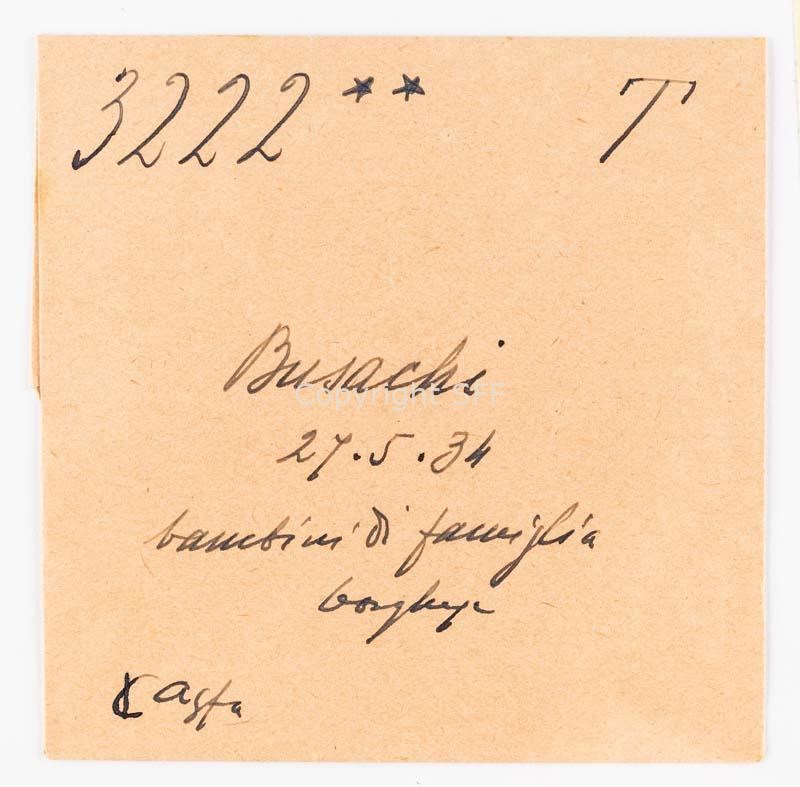 3222 ** T
Busachi
Copyright SFF
27.5.34
bambini di famiglia
borghese
agfa